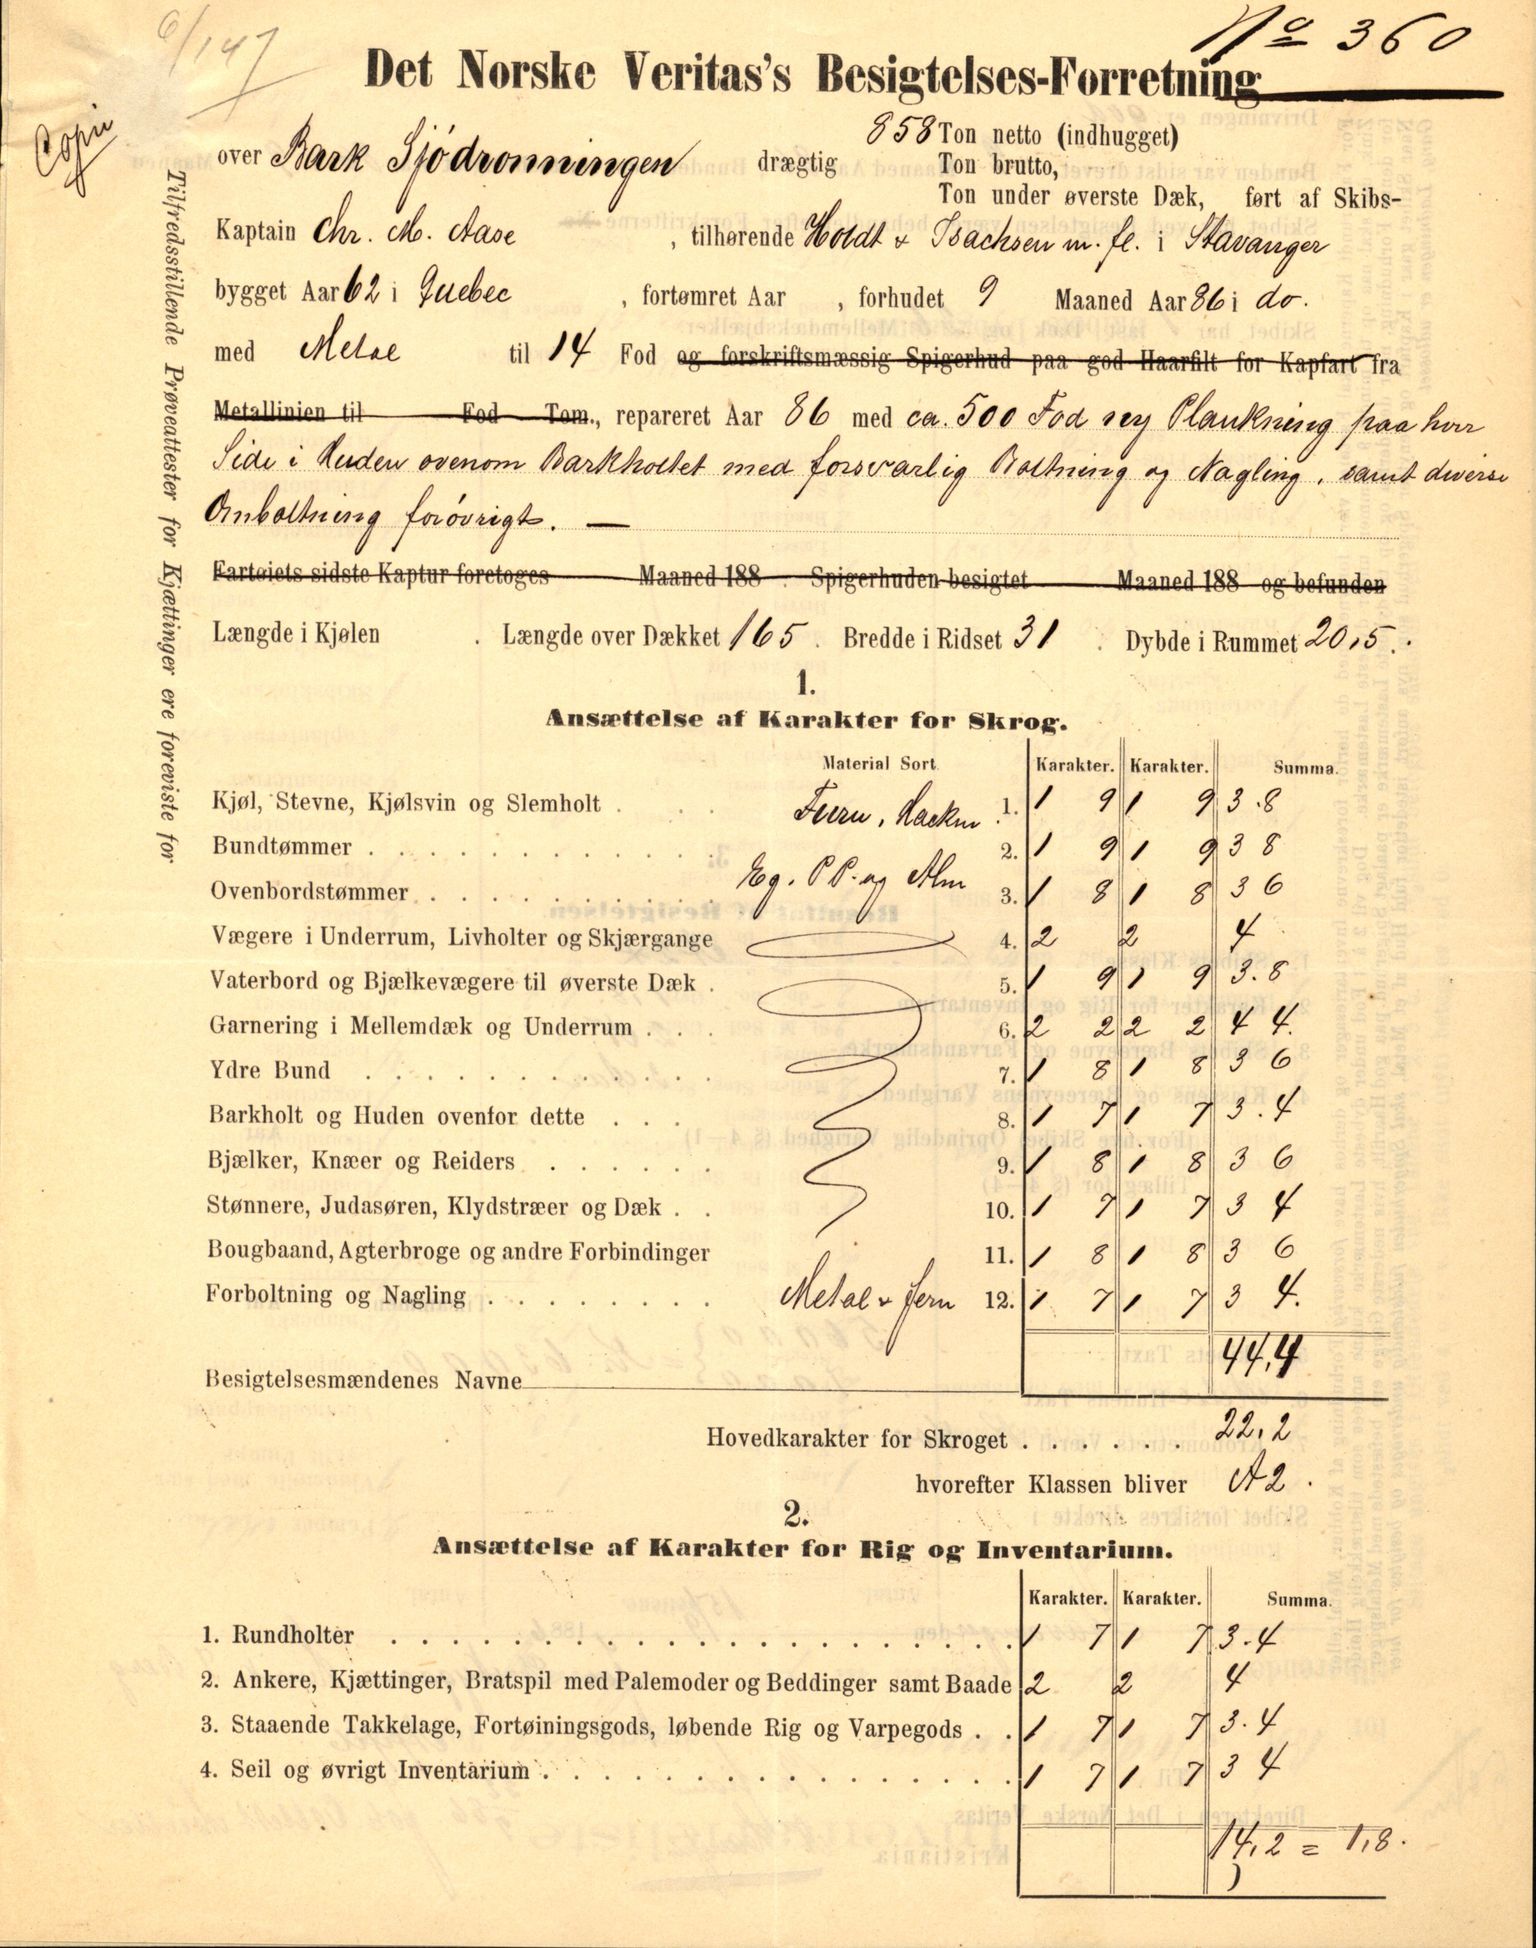 6/147
No 360
Copi
Det Norske Veritas's Besigtelses-Forretning
over Bark Sjödronningen drægtig 858 Ton netto (indhugget)
Ton brutto,
Ton under øverste Dæk, ført af Skibs-
Kaptain Chr. M. Aase, tilhørende Holdt & Isachsen m. fl. i Stavanger
bygget Aar 62 i Quebec, fortømret Aar , forhudet 9 Maaned Aar 86 i do.
med Metal til 14 Fod og forskriftsmæssig Spigerhud paa god Haarfilt for Kapfart fra
Metallinien til Fod Tom., repareret Aar 86 med ca. 500 Fod ny Plankning paa hver
Side i Huden ovenom Barkholtet med forsvarlig Boltning og Nagling, samt diverse
Omboltning forövrigt. —
Fartøiets sidste Kaptur foretoges Maaned 188 . Spigerhuden besigtet Maaned 188 og befunden
Længde i Kjølen . Længde over Dækket 165 . Bredde i Ridset 31 . Dybde i Rummet 20,5 .
Tilfredsstillende Prøveattester for Kjættinger ere foreviste for
1.
Ansættelse af Karakter for Skrog.
Material Sort Karakter. Karakter. Summa.
Kjøl, Stevne, Kjølsvin og Slemholt . . . Furu, Hackm. 1. 1 9 1 9 3.8
Bundtømmer . . . . . . . . . . . . 2. 1 9 1 9 3 8
Ovenbordstømmer . . . . . . . . . . Eg. P P. og Alm 3. 1 8 1 8 3 6
Vægere i Underrum, Livholter og Skjærgange 4. 2 2 4
Vaterbord og Bjælkevægere til øverste Dæk . 5. 1 9 1 9 3.8
Garnering i Mellemdæk og Underrum . . . 6. 2 2 2 2 4 4.
Ydre Bund . . . . . . . . . . . . 7. 1 8 1 8 3 6
Barkholt og Huden ovenfor dette . . . . 8. 1 7 1 7 3.4
Bjælker, Knæer og Reiders . . . . . . 9. 1 8 1 8 3 6
Stønnere, Judasøren, Klydstræer og Dæk . . 10. 1 7 1 7 3 4
Bougbaand, Agterbroge og andre Forbindinger 11. 1 8 1 8 3 6
Forboltning og Nagling . . . . . . . Metal & Jern 12. 1 7 1 7 3 4.
44,4
Besigtelsesmændenes Navne
Hovedkarakter for Skroget . . . . . . 22,2
hvorefter Klassen bliver A2 .
2.
Ansættelse af Karakter for Rig og Inventarium.
Karakter. Karakter. Summa.
1. Rundholter . . . . . . . . . . . . . . . . . . . . . 1 7 1 7 3.4
2. Ankere, Kjættinger, Bratspil med Palemoder og Beddinger samt Baade 2 2 4
3. Staaende Takkelage, Fortøiningsgods, løbende Rig og Varpegods . . 1 7 1 7 3.4
4. Seil og øvrigt Inventarium . . . . . . . . . . . . . . . . 1 7 1 7 3 4
14,2 = 1,8.